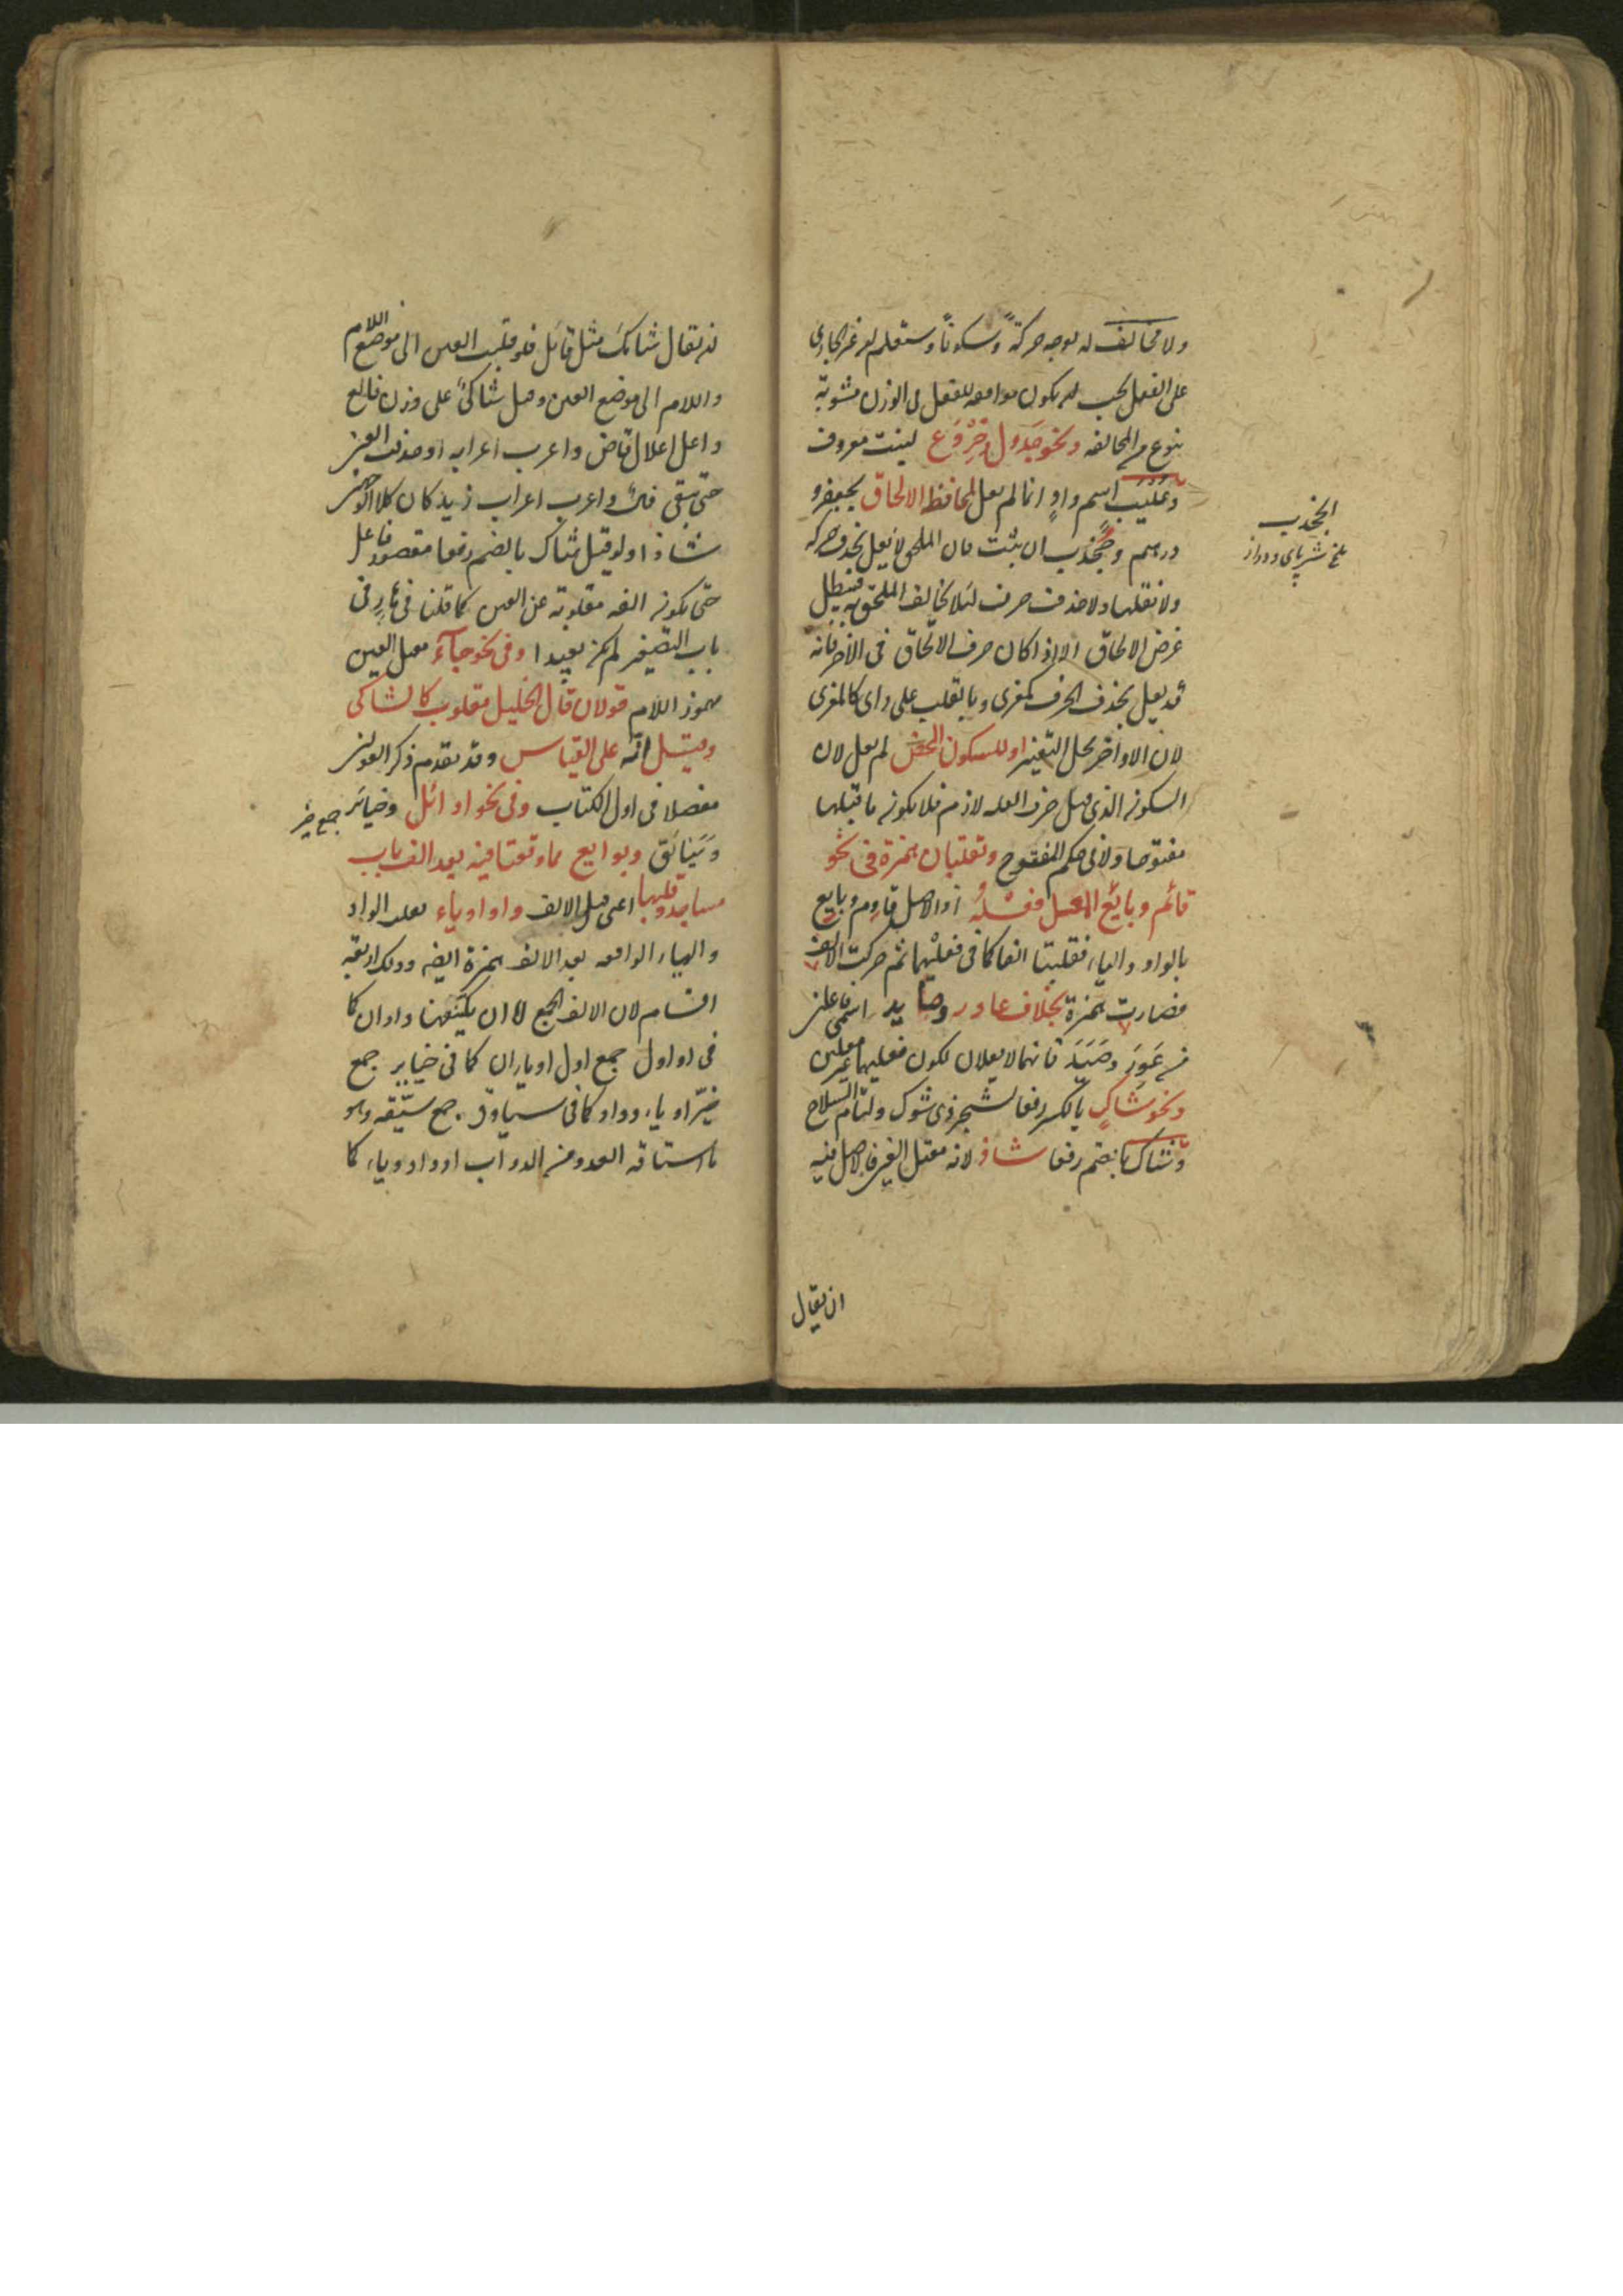 ولا مخالف له بوجه حركةً وسكوناً وستعلم ان غير الجاري
على الفعل يجب ان يكون موافقه للفعل في الوزن مشوبة
بنوع من المخالفه ونحو جدول وخروع لنبت معروف
وعليب اسم واد انما لم يعل لمحافظة الالحاق بجعفر و
درهم وجخدب ان ثبت فان الملحق لا يعل بحذف حركة
ولا نقلها ولا حذف حرف لئلا يخالف الملحق به فيبطل
غرض الالحاق الا اذا كان حرف الالحاق في الاخر فانه
قد يعل بحذف الحرف كمعزى وبالقلب على راى كالمعزى
لان الاواخر محل التغيير او للسكون المحض لم يعل لان
السكون الذي قبل حرف العله لازم فلا يكون ما قبلها
مفتوحا ولا في حكم المفتوح وتقلبان همزة في نحو
قائم وبائع المعتل فعله اذ الاصل قاوم وبايع
بالواو والياء فقلبتا الفا كما في فعليهما ثم حركت الالف
فصارت همزة بخلاف عاور وصايد اسمى فاعلين
من عَوِرَ وصَيِدَ فانهما لا يعلان لكون فعليهما غير معلين
ونحو شاكٍ بالكسر رفعا لشجر ذى شوك ولتام السلاح
وشاك بالضم رفعا شاذ لانه معتل العين فالاصل فيه
ان يقال
الجخدب
ملخ سبز پاى دراز
ان يقال شائك مثل قائل فلو قلبت العين الى موضع اللام
واللام الى موضع العين وقيل شاكىٌ على وزن فالع
واعل اعلال قاض واعرب اعرابه او حذفت العين
حتى يبقى فال واعرب اعراب زيد كان كلا الوجهين
شاذا ولو قيل شاك بالضم رفعا مقصور فاعل
حتى يكون الفه مقلوبة عن العين كما قلنا في هار في
باب التصغير لم يكن بعيدا وفي نحو جآء معتل العين
مهموز اللام قولان قال الخليل مقلوب كالشاكى
وقيل انه على القياس وقد تقدم ذكر القولين
مفصلا في اول الكتاب وفي نحو اوائل وخيائر جمع خير
وسيائق وبوايع مما وقعتا فيه بعد الف باب
مساجد وقبلها اعنى قبل الالف واو او ياء تقلب الواو
والياء الواقعه بعد الالف همزة ايضا وذلك اربعة
اقسام لان الالف الجمع اما ان يكتنفها واوان كما
في اواول جمع اول او ياءان كما في خياير جمع
خيّر او ياء وواو كما في سياوق جمع سيّقه وهو
ما استاقه العدو من الدواب او واو وياء كما